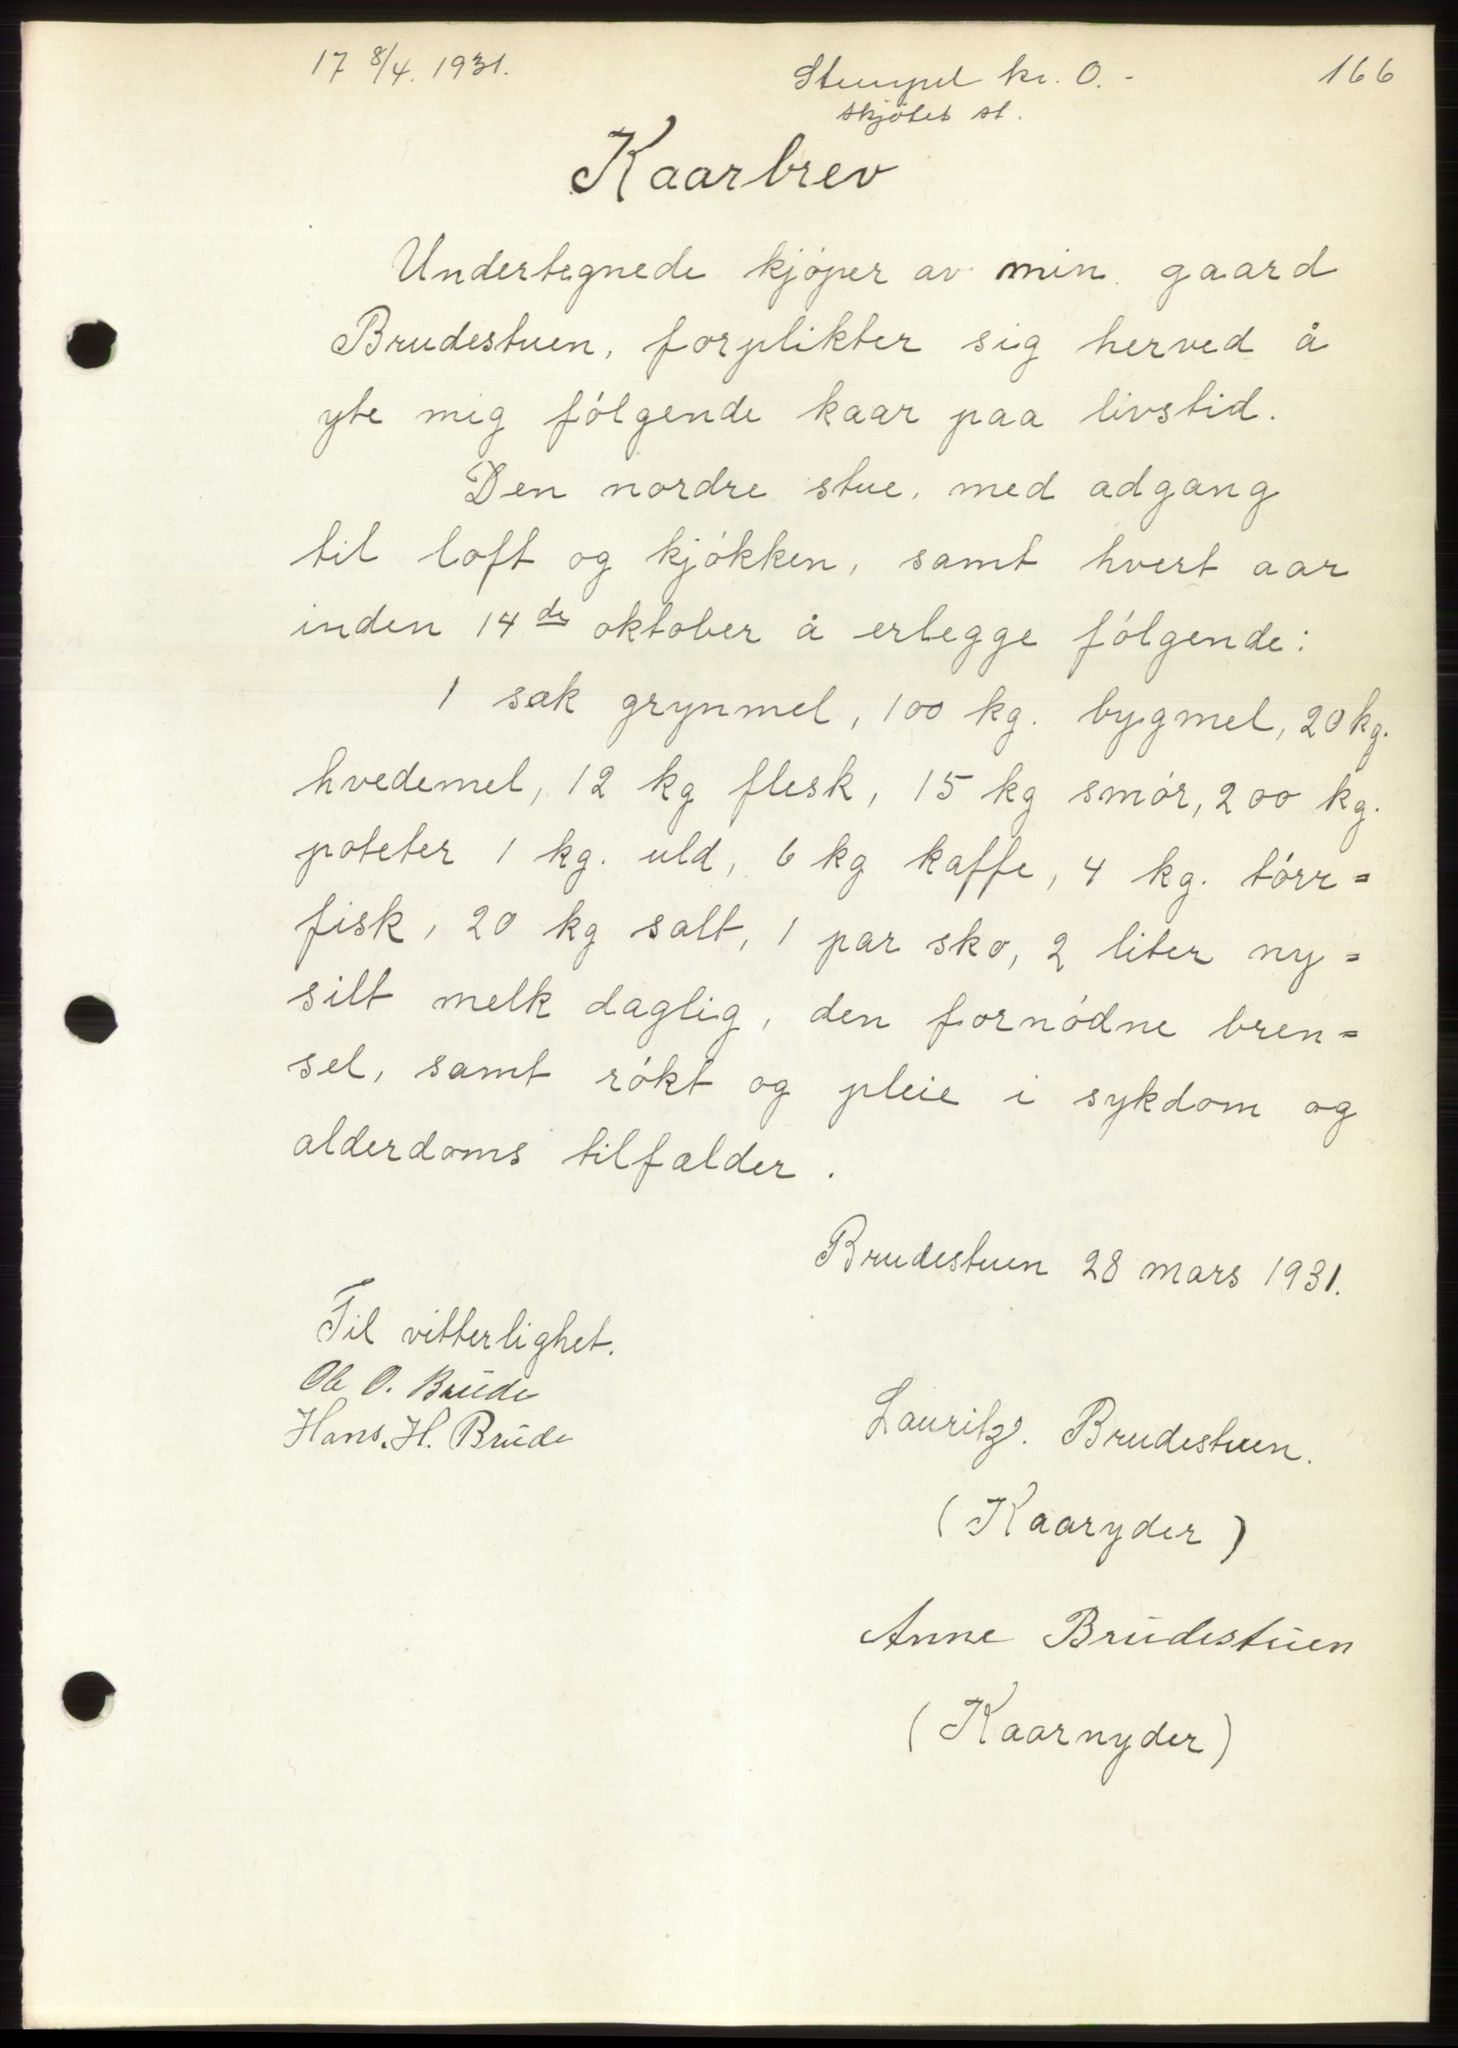 17 8/4. 1931.
Stempel kr. 0.-
166
skjøtet st.
Kaarbrev
Undertegnede kjøper av min gaard
Brudestuen, forplikter sig herved å
yte mig følgende kaar paa livstid.
Den nordre stue, med adgang
til loft og kjøkken, samt hvert aar
inden 14de oktober å erlegge følgende:
1 sæk grynmel, 100 kg. bygmel, 20 kg.
hvedemel, 12 kg flesk, 15 kg smør, 200 kg.
poteter 1 kg. uld, 6 kg kaffe, 4 kg. tørr=
fisk, 20 kg salt, 1 par sko, 2 liter ny=
silt melk daglig, den fornødne bren=
sel, samt røkt og pleie i sykdom og
alderdoms tilfælder.
Brudestuen 28 mars 1931.
Til vitterlighet.
Ole O. Brude
Hans. H. Brude
Lauritz. Brudestuen.
(Kaaryder)
Anne Brudestuen
(Kaarnyder)